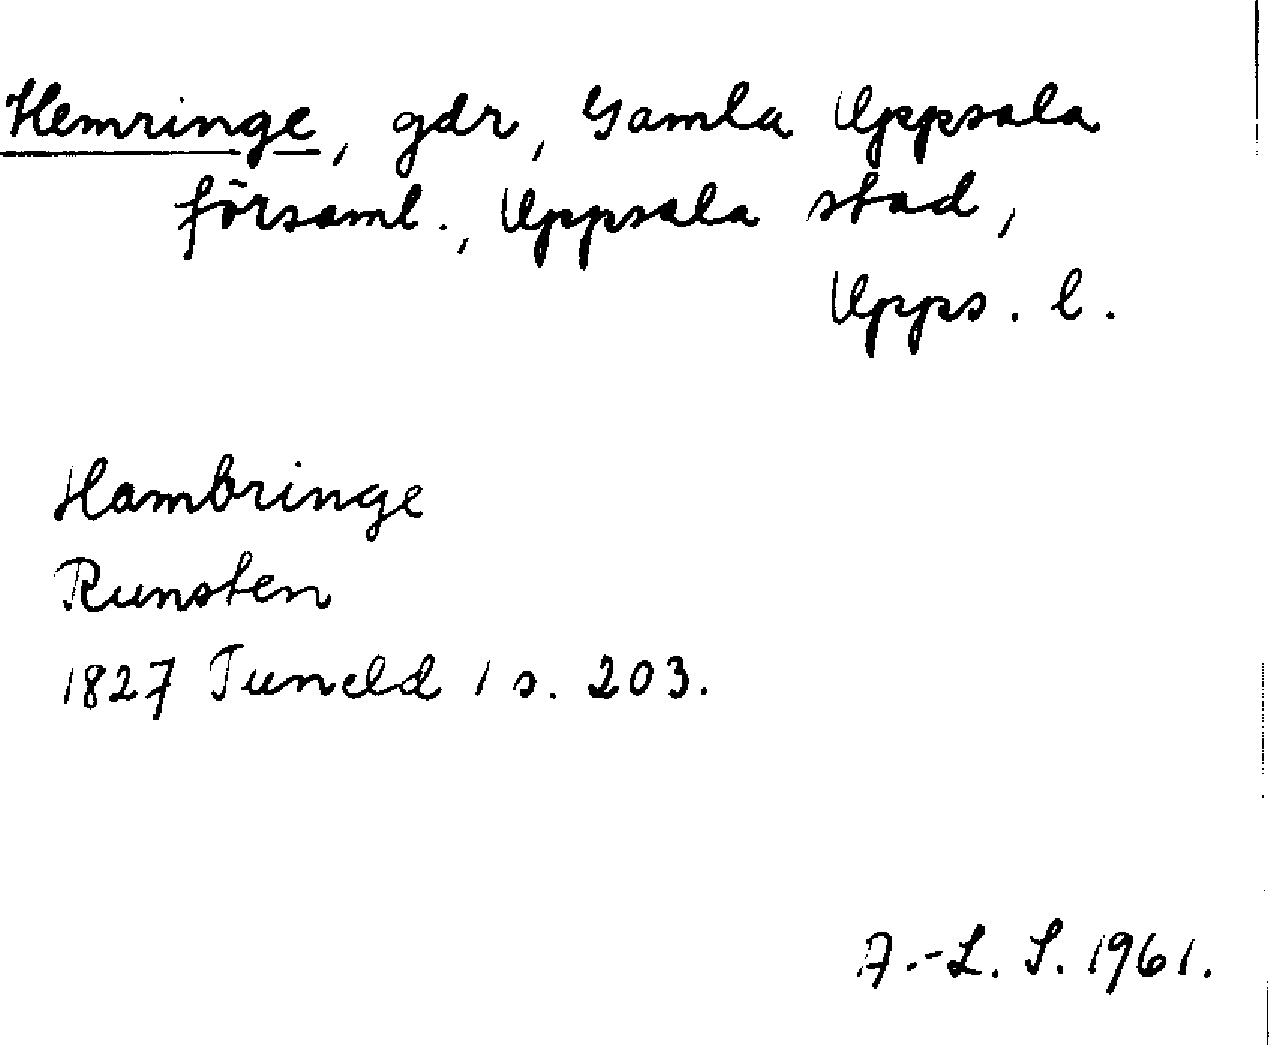 Hemringe, gdr, Gamla Uppsala
församl., Uppsala stad,
Upps. l.
Hambringe
Runsten
1827 Tuneld 1 s. 203.
A.-L. S. 1961.